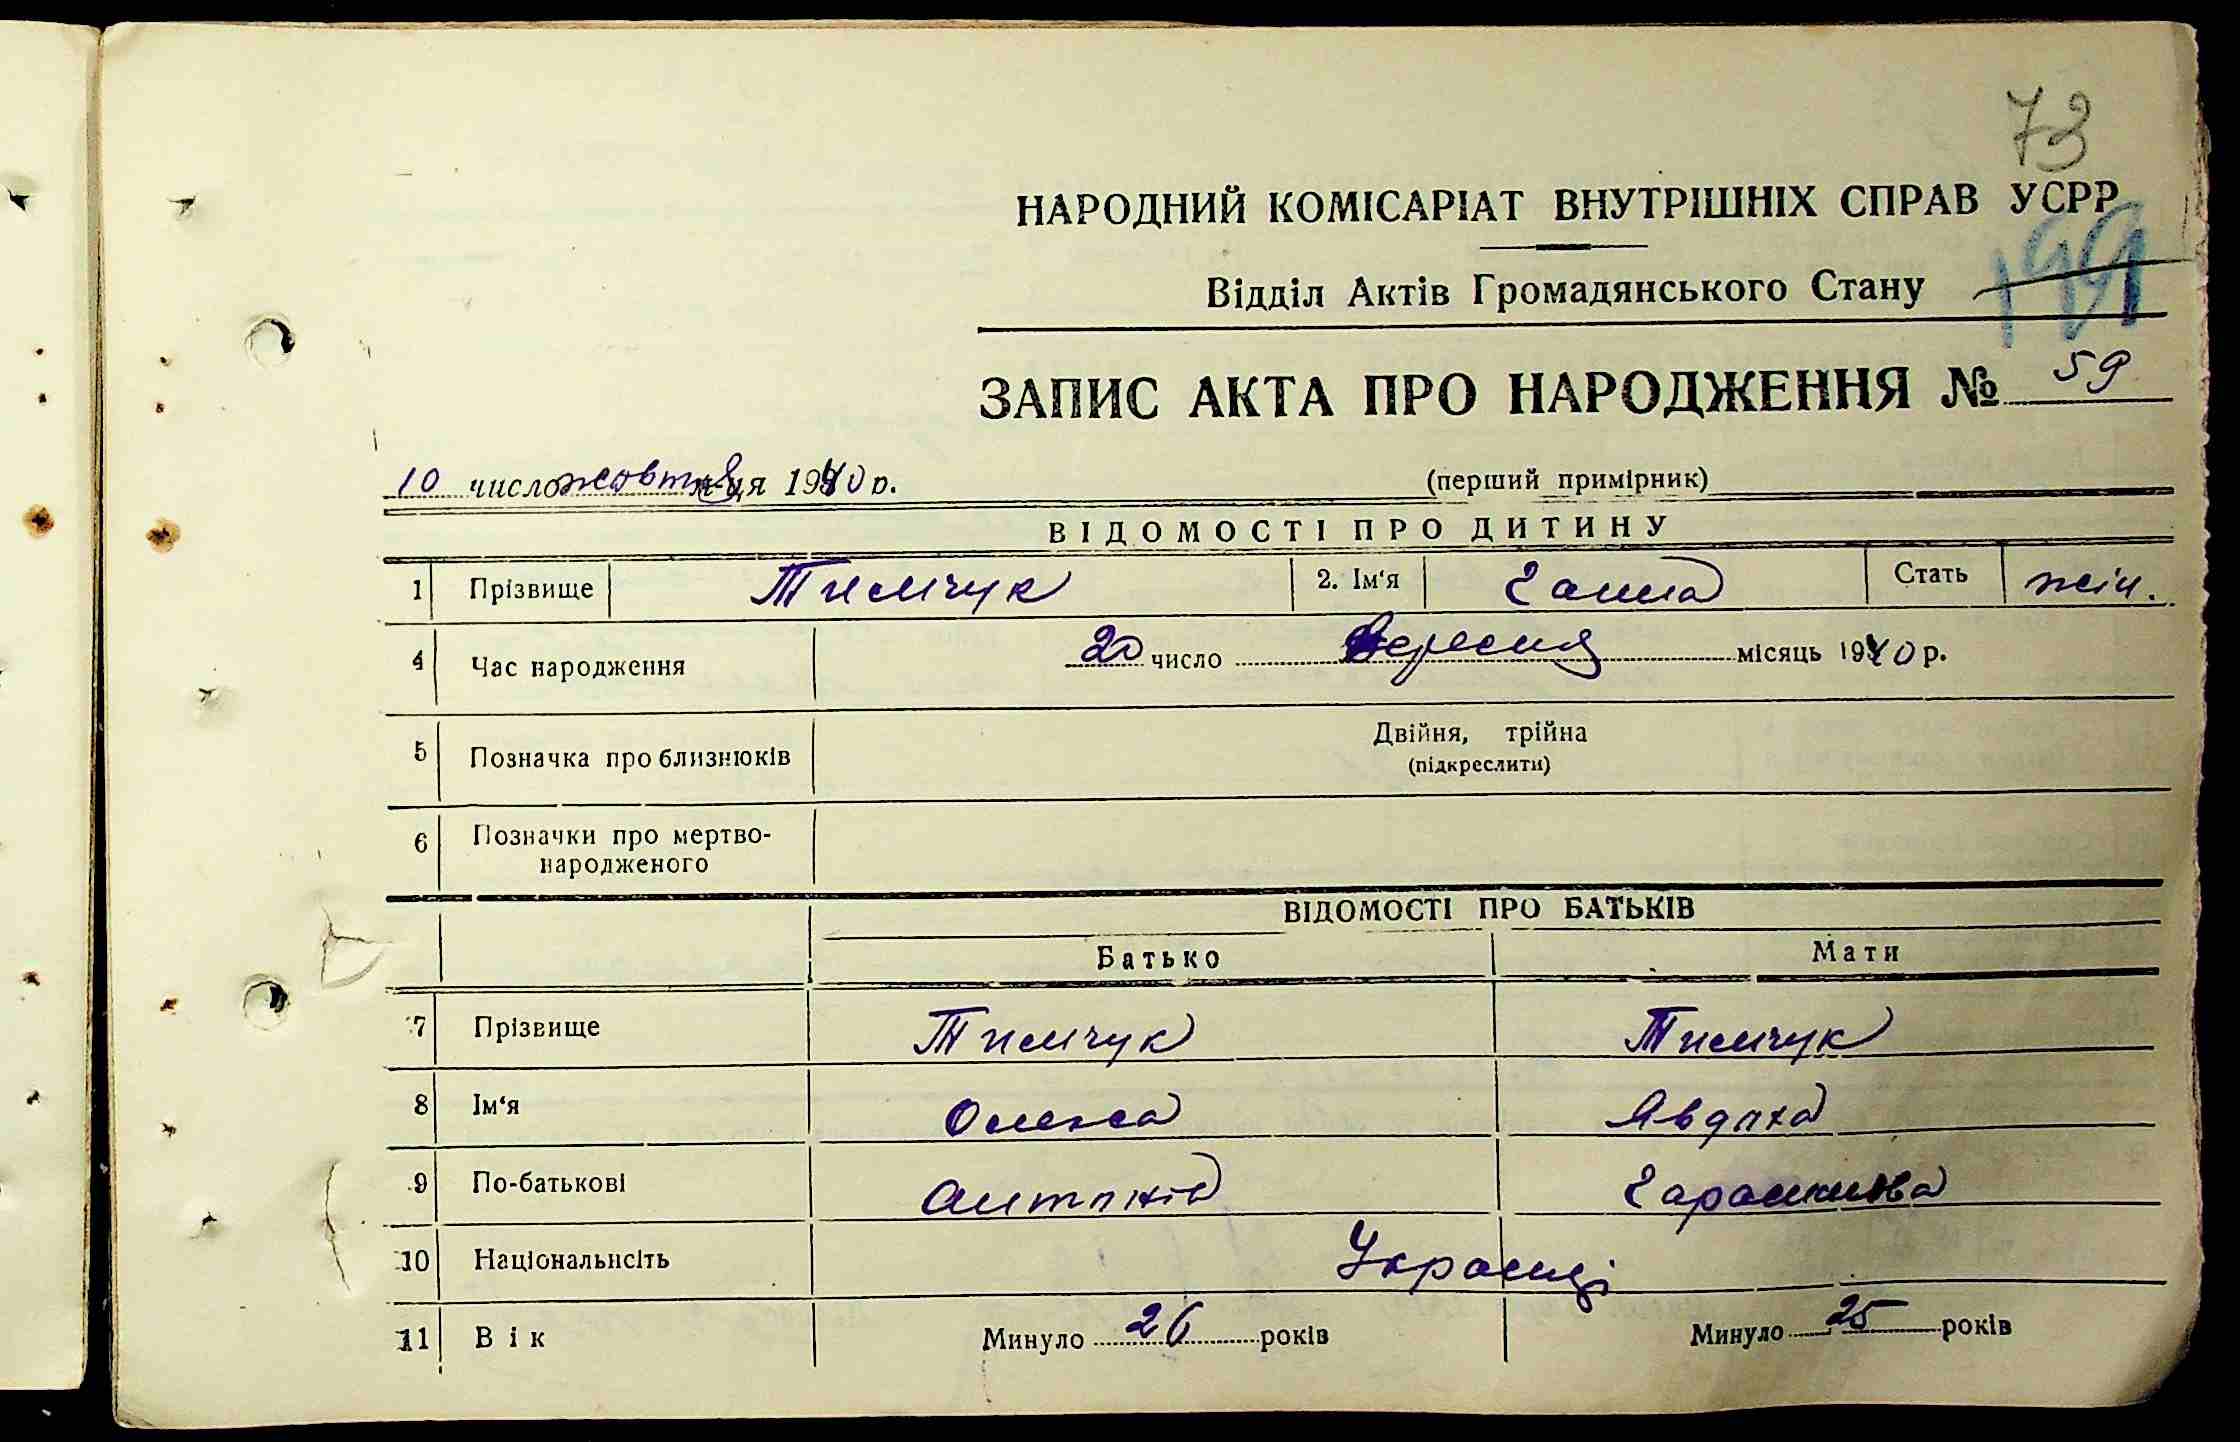 73
НАРОДНИЙ КОМІСАРІАТ ВНУТРІШНІХ СПРАВ УСРР
199
Відділ Актів Громадянського Стану
ЗАПИС АКТА ПРО НАРОДЖЕННЯ № 59
10 число жовтня м-ця 1940 р. (перший примірник)
ВІДОМОСТІ ПРО ДИТИНУ
1 Прізвище Тимчук 2. Ім'я Ганна Стать жін.
4 Час народження 20 число Вересня місяць 1940 р.
5 Позначка про близнюків Двійня, трійна
(підкреслити)
6 Позначки про мертво-
народженого
ВІДОМОСТІ ПРО БАТЬКІВ
Батько Мати
7 Прізвище Тимчук Тимчук
8 Ім'я Олекса Явдоха
9 По-батькові Антонів
10 Національнсіть Українці
11 Вік Минуло 26 років Минуло 25 років